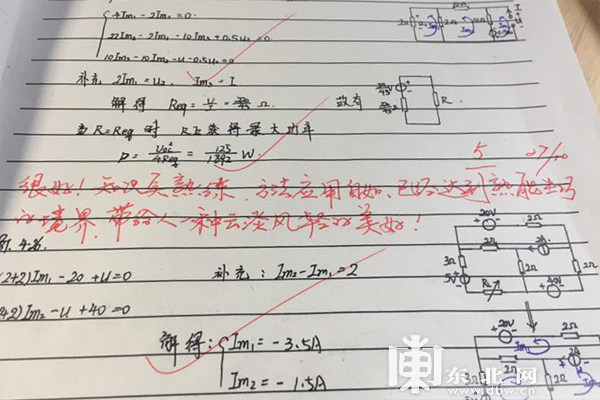 4Im₁-2Im₂=0
22Im₂-2Im₁-10Im₃+0.5u₂=0
10Im₃-10Im₂-u-0.5u₂=0
补充 2Im₁=u₂, Im₃=I
解得 Req= Ω. 故有
当R=Req时 R上获得最大功率
P=Uoc²/4Req=125/1392 W.
5 27/10
很好！知识点熟练,方法应用自如,已经达到熟能生巧
的境界,带给人一种云淡风轻的美好！
4-26.
(2+2)Im₁-20+u=0 补充：Im₂-Im₁=2
+2)Im₂-u+40=0
解得：Im₁=-3.5A
Im₂=-1.5A
20V 2Ω
2Ω 2A
3Ω 2Ω 2Ω
5V RL 40V
20V 2Ω
Im₁
2Ω 2A
东北网
www.dbw.cn